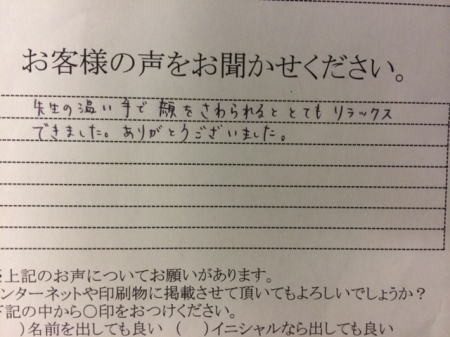 お客様の声をお聞かせください。
先生の温い手で顔をさわられるととてもリラックス
できました。ありがとうございました。
上記のお声についてお願いがあります。
ンターネットや印刷物に掲載させて頂いてもよろしいでしょうか？
下記の中から〇印をおつけください。
)名前を出しても良い ( )イニシャルなら出しても良い